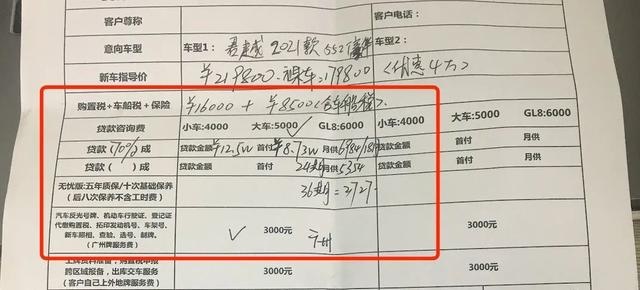 客户尊称
客户电话：
意向车型 车型1：君越 2021款 552 车型2：
新车指导价 ¥219800.裸车:179800（优惠4万）
购置税+车船税+保险 ¥16000 + ¥8500（含车船税）.
贷款咨询费 小车:4000 大车:5000 GL8:6000 小车:4000 大车:5000 GL8:6000
贷款(70%)成 贷款金额 ¥12.5w 首付 ¥8.73w 月供 6984/18期 贷款金额 首付 月供
贷款( )成 贷款金额 首付 24期 月供 5354 贷款金额 首付 月供
无忧版:五年质保/十次基础保养 36期=3727
（后八次保养不含工费）
汽车反光号牌、机动车行驶证、登记证
代缴购置税、拓印发动机号、车架号、 3000元 3000元
新车照相、查验、选号、制牌。
（广州牌服务费） 广州
跨区域报备，出库交车服务 3000元 3000元
（客户自己上外地牌服务费）